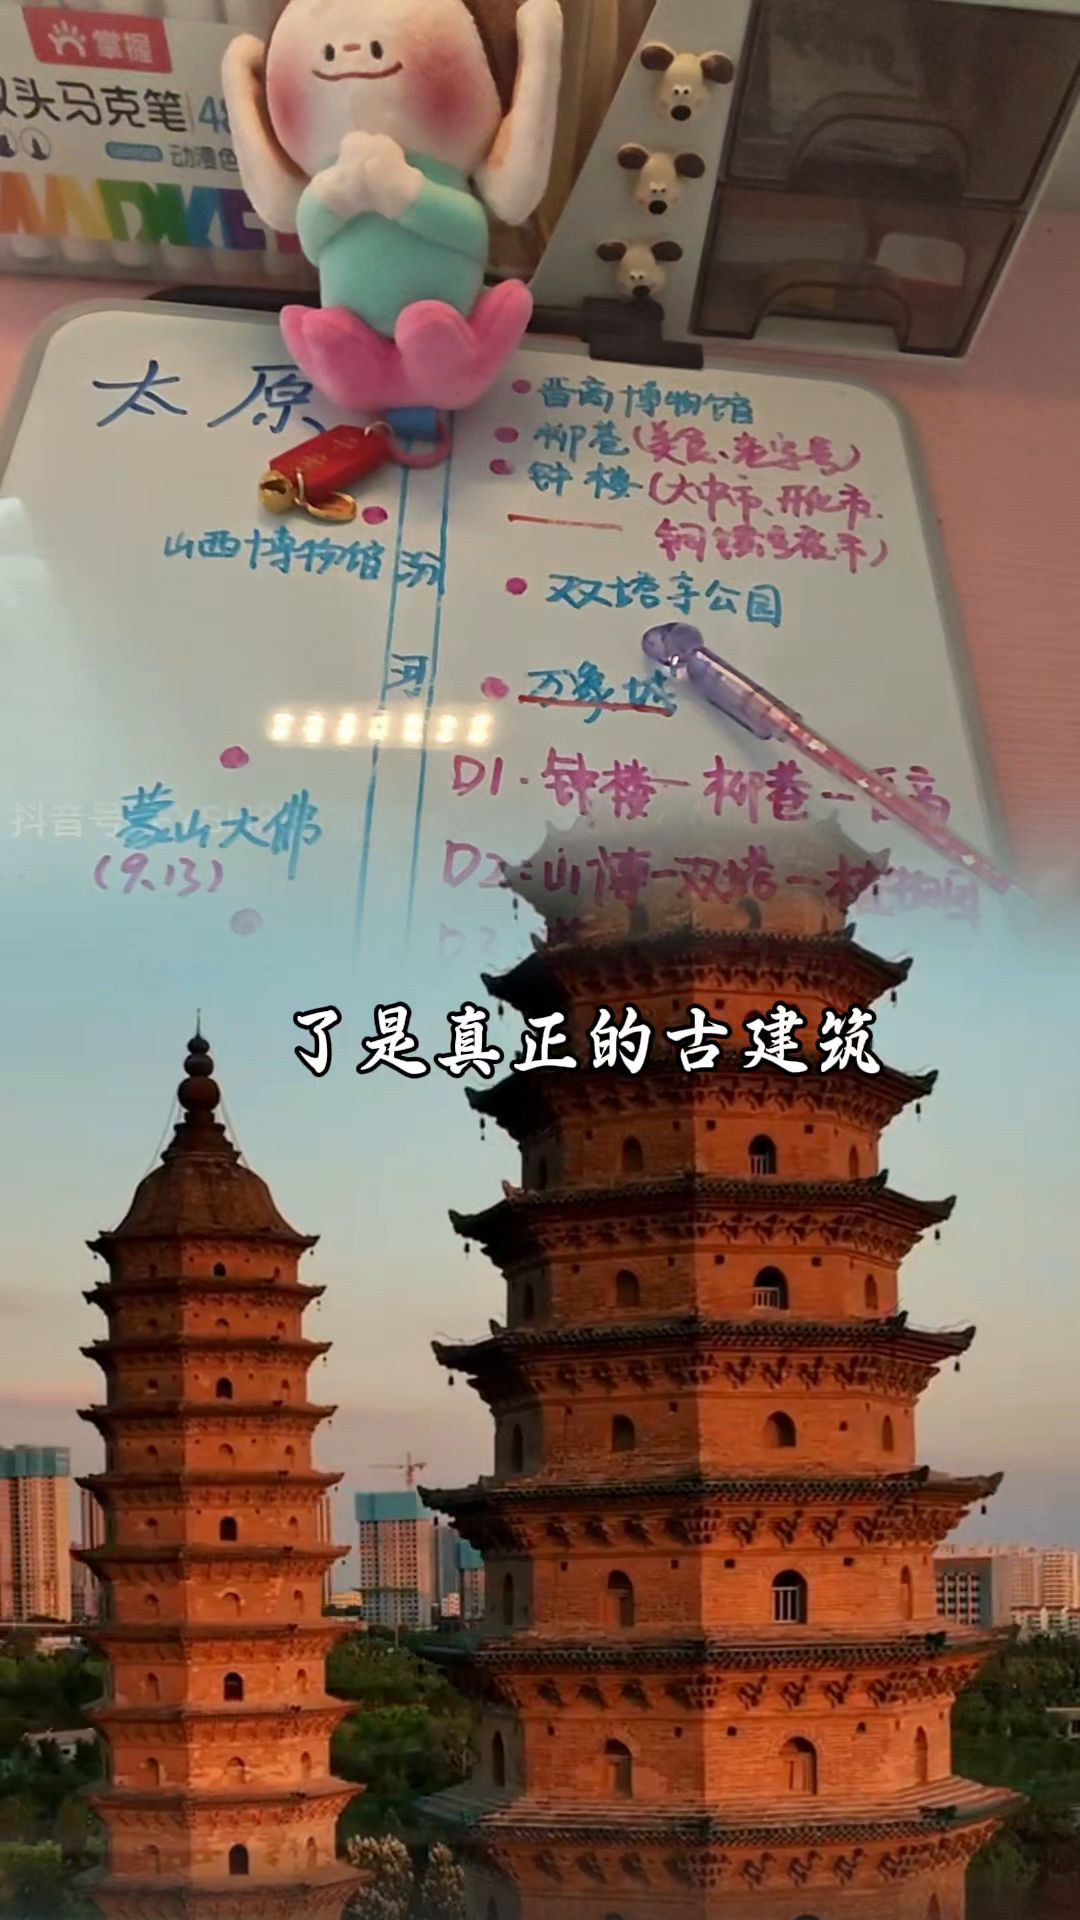 掌握
双头马克笔 48
动漫色
太原
晋商博物馆
柳巷(美食、老字号)
钟楼(大中市、开化市、
铜锣湾夜市)
山西博物馆
汾
河
双塔寺公园
万象城
D1.钟楼-柳巷-晋商
抖音号
蒙山大佛
(9.13)
D2:山博-双塔-植物园
D3
了是真正的古建筑